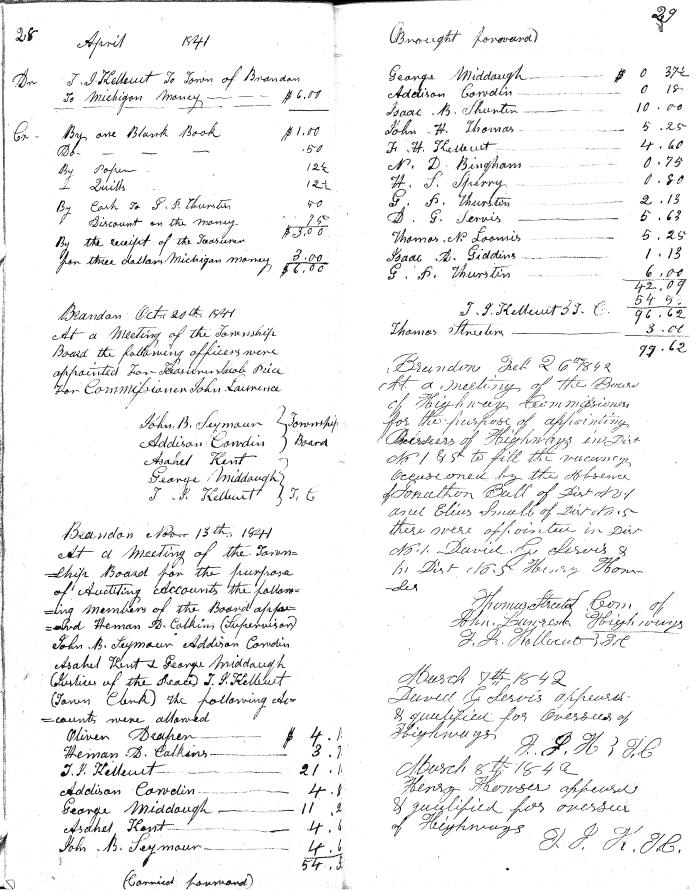 28
April 1841
Dr T. J. Kelleut To Town of Brandon
To Michigan Money $6.00
Cr By one Blank Book $1.00
Do .50
By Paper 12½
" Quills 12½
By Cash To G. P. Thurstin 50
Discount on the money 75
$3.00
By the receipt of the Treasurer
for three dollars Michigan money 3.00
$6.00
Brandon Oct. 20th 1841
At a Meeting of the Township
Board the following officers were
appointed For Treasurer Jacob Price
For Commissioner John Lawrence
John B. Seymour } Township
Addison Cowdin } Board
Asahel Kent
George Middaugh
T. J. Kelleut } T. C
Brandon Nov. 13th. 1841
At a Meeting of the Town=
=ship Board for the purpose
of Auditing accounts the follow=
=ing members of the Board appe=
=ard Heman D. Calkins (Supervisor)
John B. Seymour Addison Cowdin
Asahel Kent & George Middaugh
(Justices of the Peace) T. J. Kelleut
(Town Clerk) The following Ac=
=counts were allowed
Oliver Draper $ 4.
Heman D. Calkins 3.
T. J. Kelleut 21.
Addison Cowdin 4.
George Middaugh 11.
Asahel Kent 4.
John B. Seymour 4.
54.
(Carried forward)
29
(Brought forward)
George Middaugh $ 0 37½
Addison Cowdin 0 18
Isaac B. Shunten 10.00
John H. Thomas 5.25
H. Kelleut 4.60
N. D. Bingham 0.75
H. S. Sperry 0.80
G. P. Thurstin 2.13
D. G. Servis 5.63
Thomas N. Loomis 5.25
Isaac D. Giddins 1.13
G. P. Thurstin 6.00
42.09
54 5
T. J. Kelleut } T. C. 96.62
Thomas Streeter 3.00
99.62
Brandon Feb 26th 1842
At a meeting of the Board
of Highway Commissioners
for the purpose of appointing
Overseers of Highways in Dist
No 1 & 5 to fill the vacancy
occasioned by the Absence
of Jonathon Ball of Dist No 1
and Elias Small of Dist No. 5
there were appointed in Dist
No. 1. David G. Servis &
In Dist No 5 Henry How-
ser
Thomas Com. of
John Lawrence Highways
T. J. Kelleut } T C
March 7th 1842
David G Servis appeared
& qualified for Overseer of
Highways T. J. K } T C
March 8th 1842
Henry Howser appeared
& qualified for overseer
of Highways T. J. K. T. C.